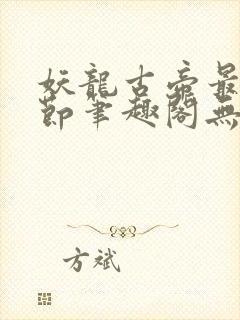 妖龍古帝最
節筆趣閣無
方斌